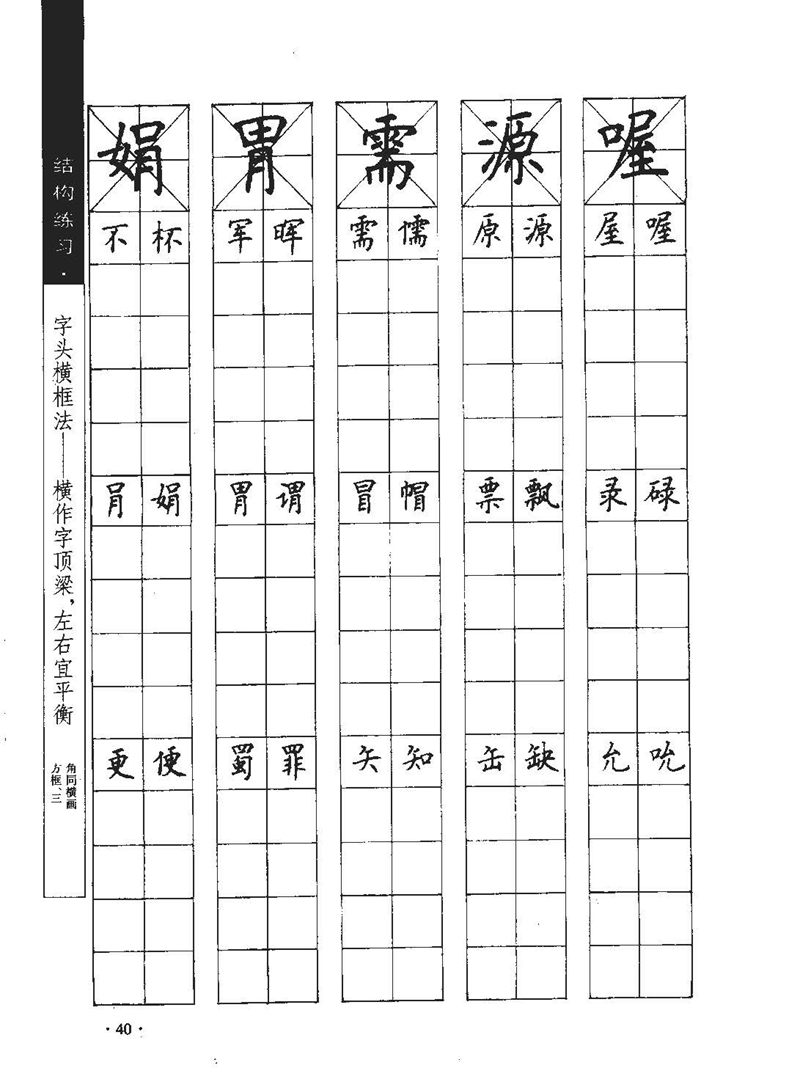 结构练习·
字头横框法——横作字顶梁,左右宜平衡
角同横画
方框、三
娟 胃 需 源 喔
不 杯 军 晖 需 懦 原 源 屋 喔
肙 娟 胃 谓 冒 帽 票 飘 录 碌
更 便 蜀 罪 矢 知 缶 缺 允 吮
·40·